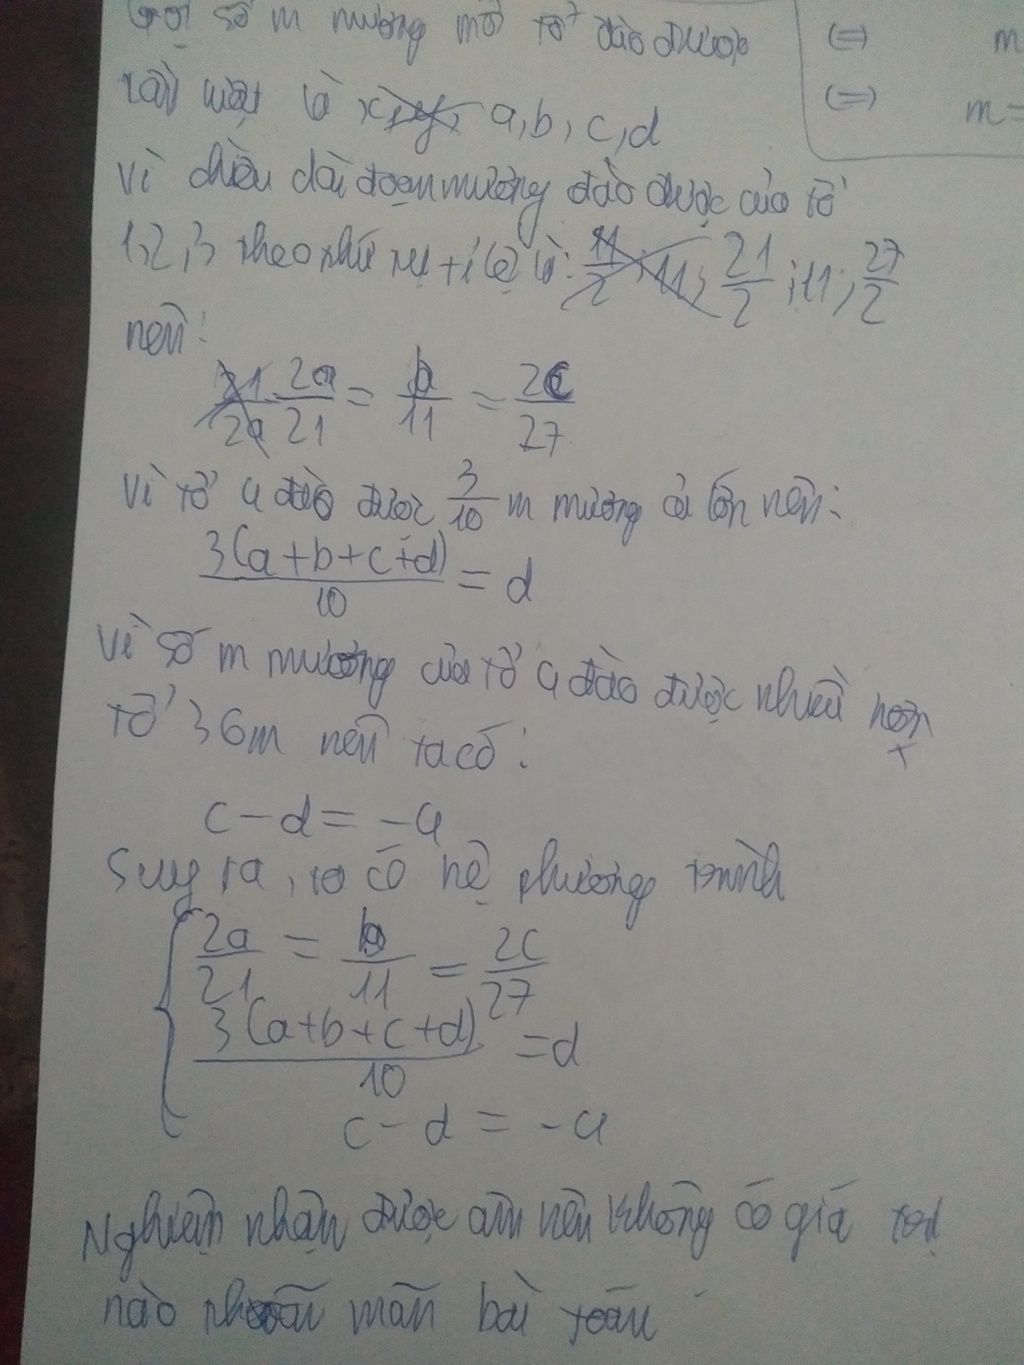 Gọi số m mương mỗi tổ đào được
(=) m
lần lượt là x, y, a, b, c, d
(=) m=
Vì chiều dài đoạn mương đào được của tổ
1, 2, 3 theo thứ tự tỉ lệ là: 11/2; 11; 21/2; 11; 27/2
nên:
21/2a 2a/21 = b/11 = 2c/27
Vì tổ 4 đào được 3/10 m mương cả lớn nên:
3(a+b+c+d)/10 = d
Vì số m mương của tổ 4 đào được nhiều hơn
tổ 3 6m nên ta có:
c-d = -4
Suy ra, ta có hệ phương trình
2a/21 = b/11 = 2c/27
3(a+b+c+d)/10 = d
c-d = -4
Nghiệm nhận được âm nên không có giá trị
nào thoã mãn bài toán